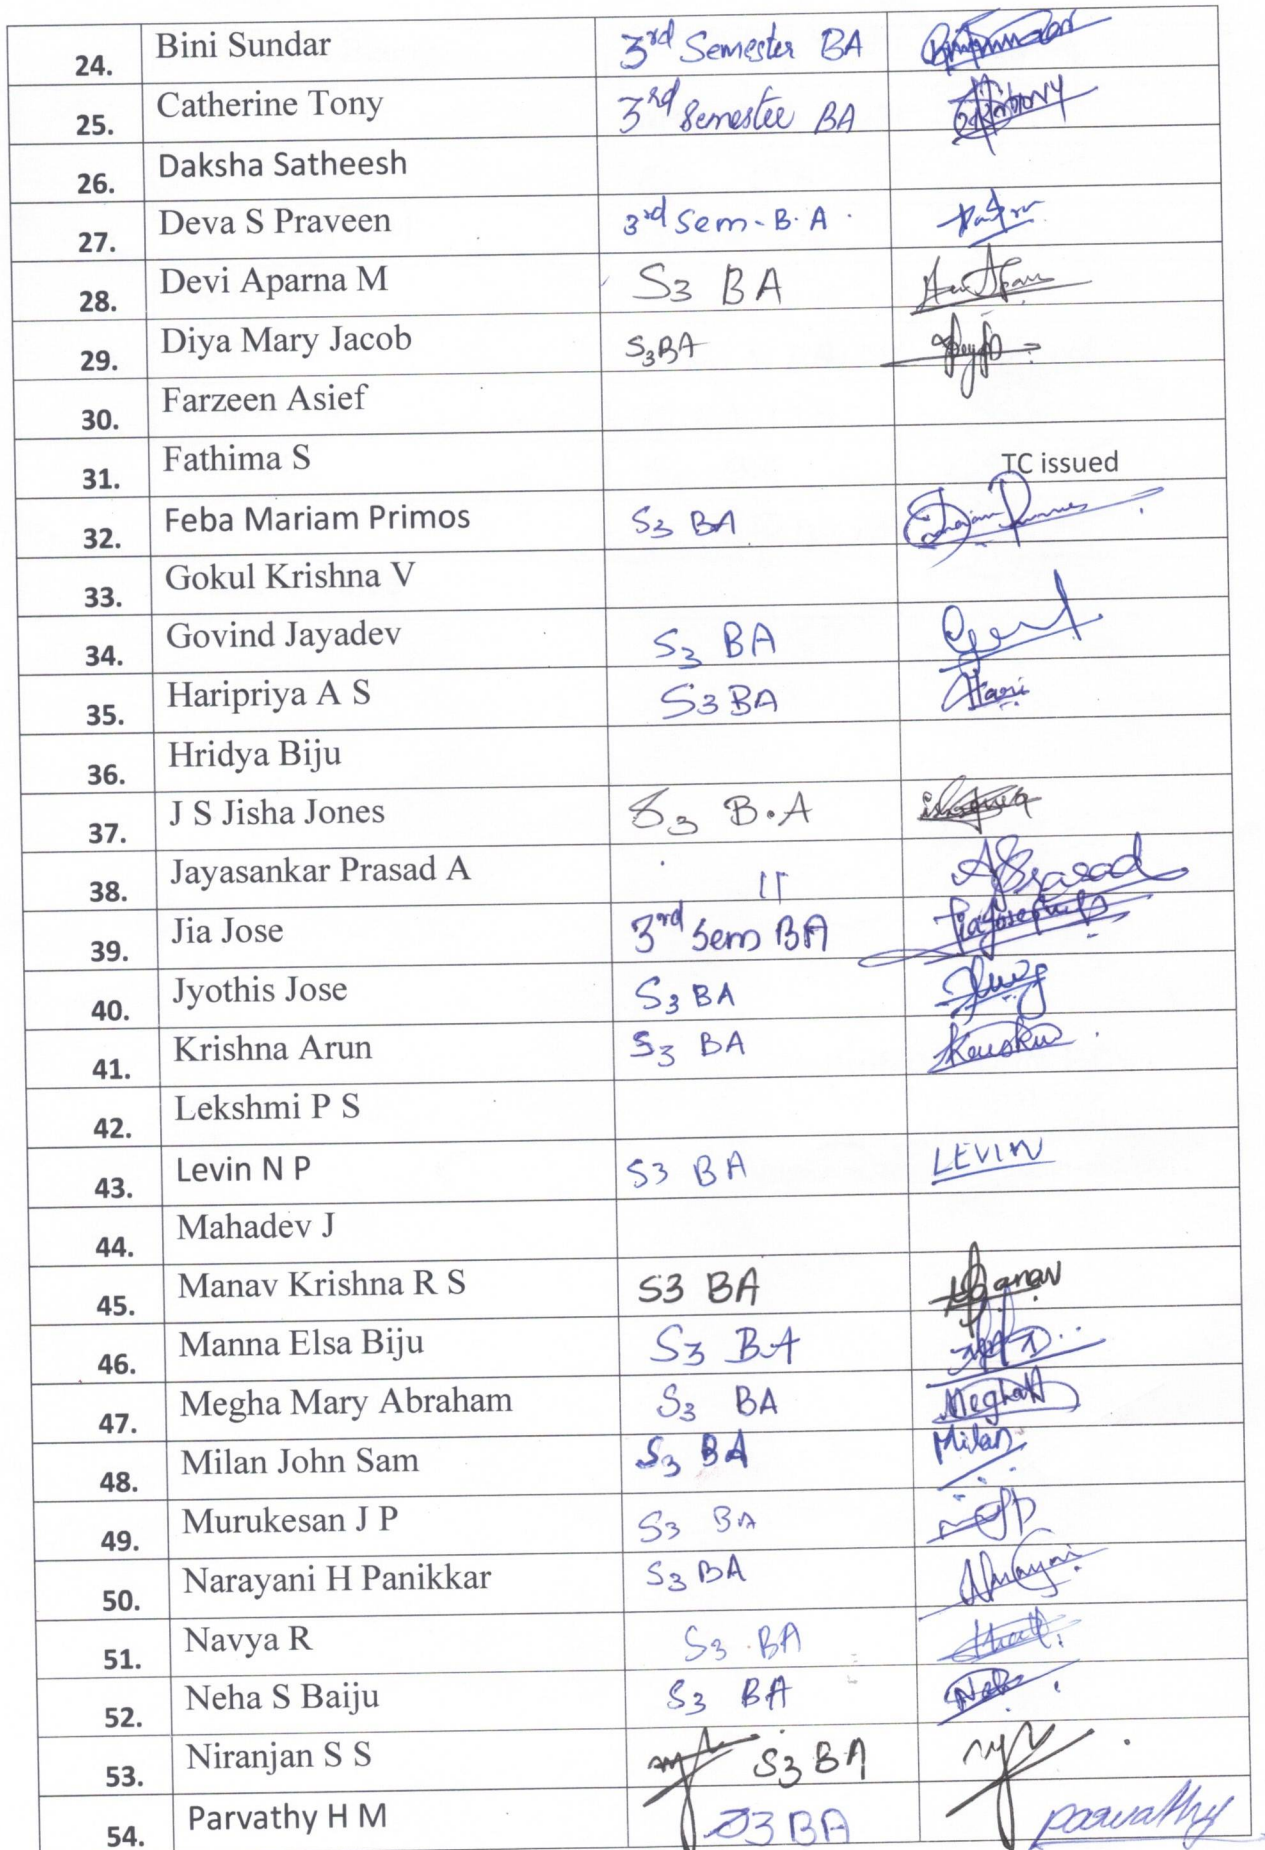 24. Bini Sundar 3rd Semester BA
25. Catherine Tony 3rd Semester BA
26. Daksha Satheesh
27. Deva S Praveen 3rd Sem-B.A.
28. Devi Aparna M S3 BA
29. Diya Mary Jacob S3BA
30. Farzeen Asief
31. Fathima S TC issued
32. Feba Mariam Primos S3 BA
33. Gokul Krishna V
34. Govind Jayadev S3 BA
35. Haripriya A S S3 BA Hari
36. Hridya Biju
37. J S Jisha Jones S3 B.A
38. Jayasankar Prasad A 11 APrasad
39. Jia Jose 3rd Sem BA
40. Jyothis Jose S3 BA
41. Krishna Arun S3 BA
42. Lekshmi P S
43. Levin N P S3 BA LEVIN
44. Mahadev J
45. Manav Krishna R S S3 BA Manav
46. Manna Elsa Biju S3 BA
47. Megha Mary Abraham S3 BA Megha
48. Milan John Sam S3 BA Milan
49. Murukesan J P S3 BA
50. Narayani H Panikkar S3 BA Narayani
51. Navya R S3 BA
52. Neha S Baiju S3 BA Neha
53. Niranjan S S S3 BA
54. Parvathy H M S3 BA Parvathy